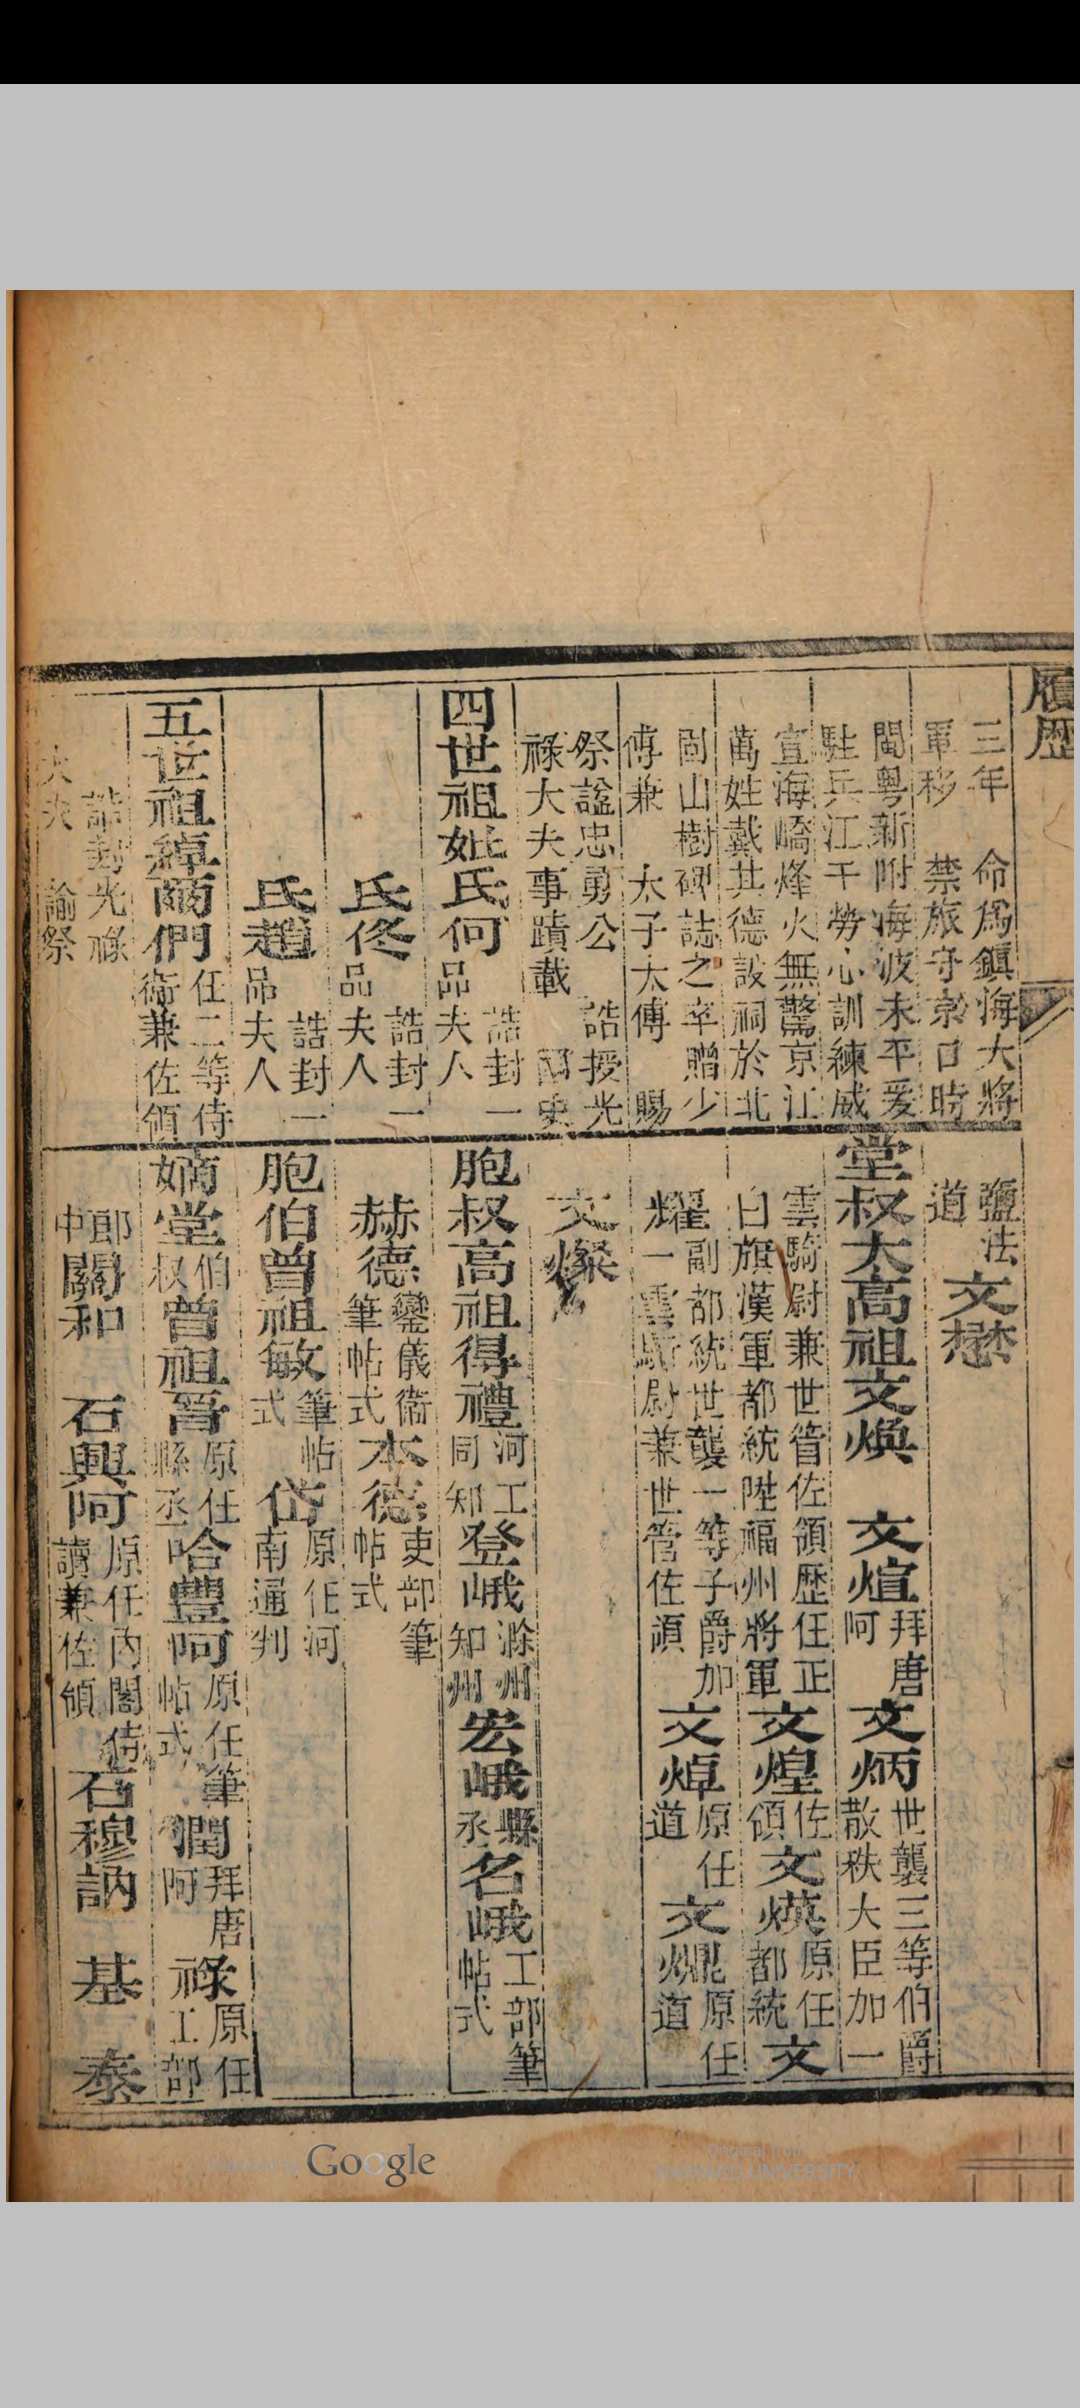 履歴
三年　命爲鎮海大將
軍移　禁旅守京口時
閩粤新附海波未平爰
駐兵江干勞心訓練威
宣海嶠烽火無驚京江
萬姓戴其德設祠於北
固山樹碑誌之卒贈少
傅兼　太子太傅　賜
祭諡忠勇公　誥授光
祿大夫事蹟載　國史
四世祖妣氏何　誥封一品夫人
氏佟　誥封一品夫人
氏趙　誥封一品夫人
五世祖綽爾們　任二等侍衛兼佐領
誥封光祿
大夫　諭祭
鹽法道　文懋
堂叔太高祖文煥　文煊　拜唐阿　文炳　世襲三等伯爵散秩大臣加一
雲騎尉兼世管佐領歴任正白旗漢軍都統陞福州將軍　文煌　佐領　文煐　原任都統　文
耀　副都統世襲一等子爵加一雲騎尉兼世管佐領　文焯　原任道　文　原任道
文燦
胞叔高祖得禮　河工同知　登峨　滁州知州　宏峨　縣丞　名峨　工部筆帖式
赫德　鑾儀衛筆帖式　本德　吏部筆帖式
胞伯曾祖敏　筆帖式　岱　原任河南通判
嫡堂伯叔曾祖晉　原任縣丞　哈豐阿　原任筆帖式　潤　拜唐阿　祿　原任工部
郎中　關和　石興阿　原任內閣侍讀兼佐領　石穆訥　基泰
Google
Original from
HARVARD UNIVERSITY